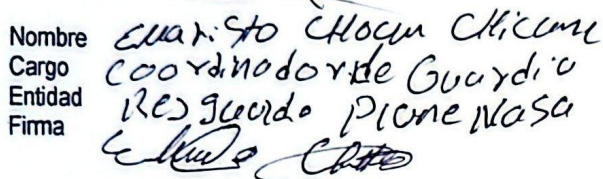 Nombre Evaristo Chocue Chicame
Cargo Coordinador de Guardia
Entidad Resguardo Pione Nasa
Firma